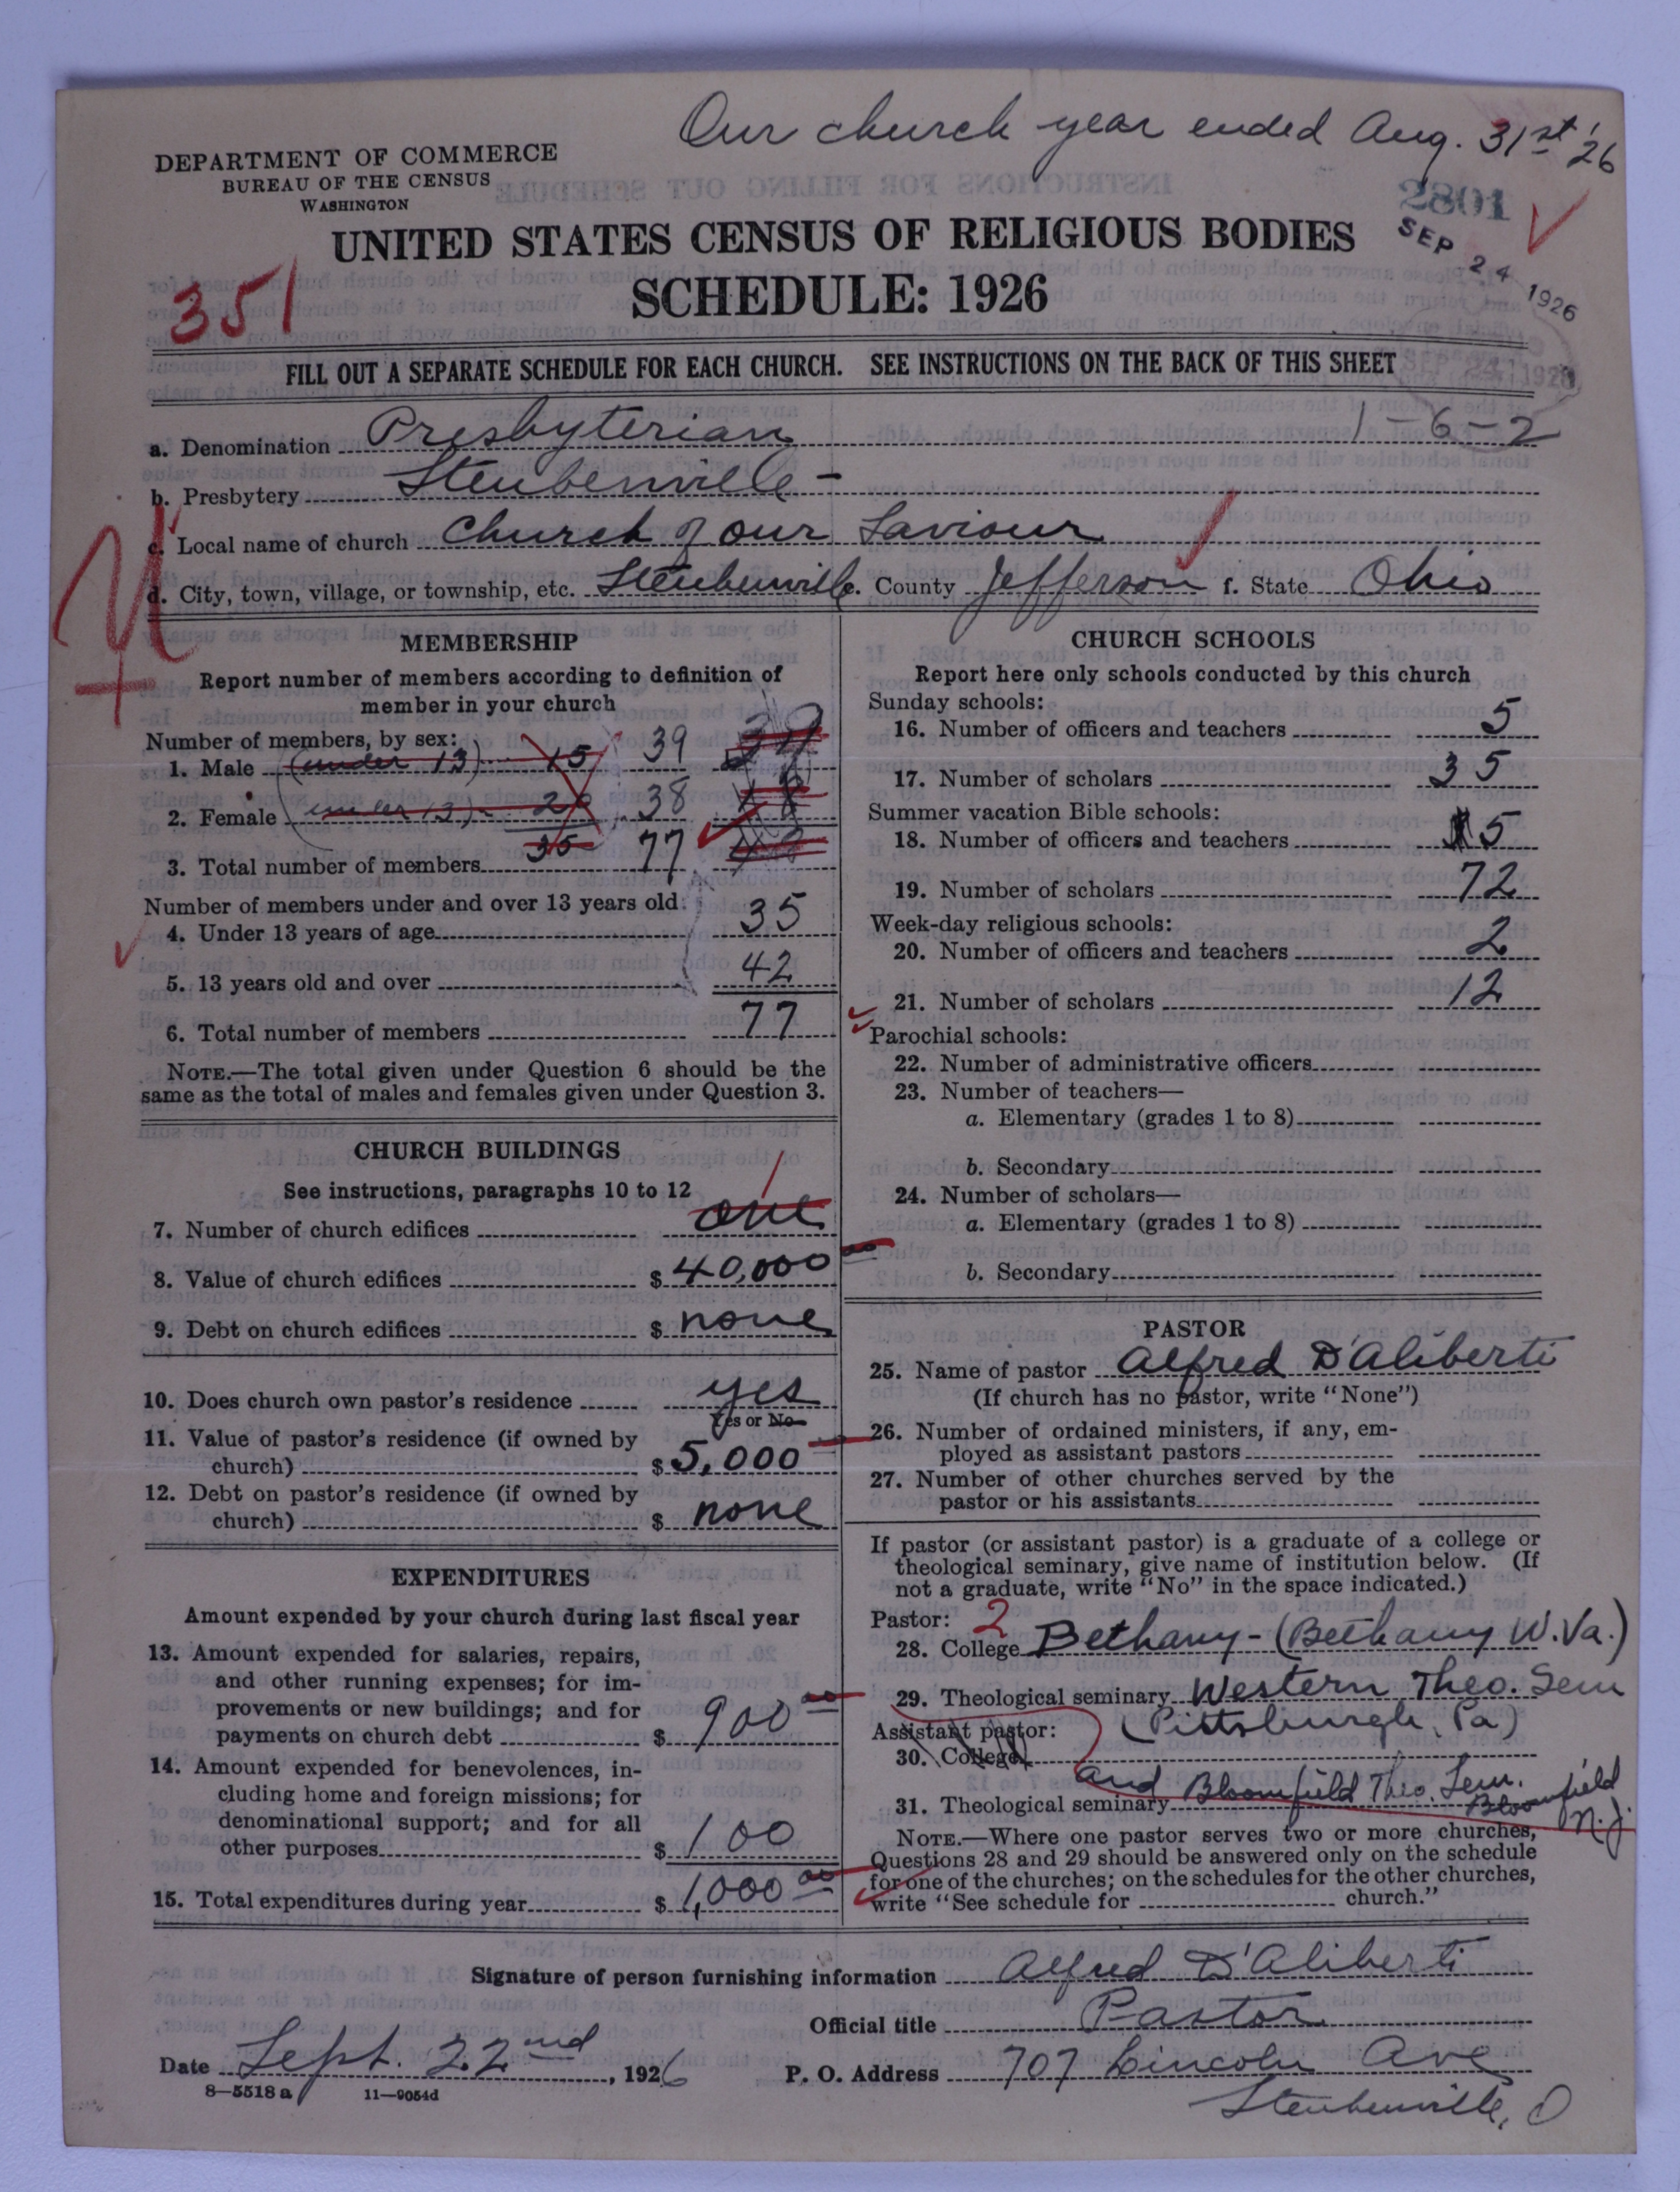 Our church year ended Aug. 31st '26
DEPARTMENT OF COMMERCE
BUREAU OF THE CENSUS
WASHINGTON
2801
SEP 24 1926
UNITED STATES CENSUS OF RELIGIOUS BODIES
351
SCHEDULE: 1926
FILL OUT A SEPARATE SCHEDULE FOR EACH CHURCH. SEE INSTRUCTIONS ON THE BACK OF THIS SHEET
a. Denomination Presbyterian 1-6-2
b. Presbytery Steubenville -
c. Local name of church Church of our Saviour
d. City, town, village, or township, etc. Steubenville e. County Jefferson f. State Ohio
MEMBERSHIP
Report number of members according to definition of
member in your church
Number of members, by sex:
1. Male (under 13) 15 39
2. Female (under 13) - 20 38
3. Total number of members 35 77
Number of members under and over 13 years old:
4. Under 13 years of age 35
5. 13 years old and over 42
6. Total number of members 77
NOTE.—The total given under Question 6 should be the
same as the total of males and females given under Question 3.
CHURCH BUILDINGS
See instructions, paragraphs 10 to 12
1
7. Number of church edifices one
8. Value of church edifices $ 40,000 00
9. Debt on church edifices $ none
10. Does church own pastor's residence yes
Yes or No
11. Value of pastor's residence (if owned by
church) $ 5,000
12. Debt on pastor's residence (if owned by
church) $ none
EXPENDITURES
Amount expended by your church during last fiscal year
13. Amount expended for salaries, repairs,
and other running expenses; for im-
provements or new buildings; and for
payments on church debt $ 900 00
14. Amount expended for benevolences, in-
cluding home and foreign missions; for
denominational support; and for all
other purposes $ 100
15. Total expenditures during year $ 1,000 00
CHURCH SCHOOLS
Report here only schools conducted by this church
Sunday schools:
16. Number of officers and teachers 5
17. Number of scholars 35
Summer vacation Bible schools:
18. Number of officers and teachers 5
19. Number of scholars 72
Week-day religious schools:
20. Number of officers and teachers 2
21. Number of scholars 12
Parochial schools:
22. Number of administrative officers
23. Number of teachers—
a. Elementary (grades 1 to 8)
b. Secondary
24. Number of scholars—
a. Elementary (grades 1 to 8)
b. Secondary
PASTOR
25. Name of pastor Alfred D'Aliberti
(If church has no pastor, write "None")
26. Number of ordained ministers, if any, em-
ployed as assistant pastors
27. Number of other churches served by the
pastor or his assistants
If pastor (or assistant pastor) is a graduate of a college or
theological seminary, give name of institution below. (If
not a graduate, write "No" in the space indicated.)
Pastor: 2
28. College Bethany - (Bethany W. Va.)
29. Theological seminary Western Theo. Sem
Assistant pastor: (Pittsburgh, Pa)
30. College
and Bloomfield Theo. Sem. Bloomfield
31. Theological seminary N.J.
NOTE.—Where one pastor serves two or more churches,
Questions 28 and 29 should be answered only on the schedule
for one of the churches; on the schedules for the other churches,
write "See schedule for church."
Signature of person furnishing information Alfred D'Aliberti
Official title Pastor
Date Sept. 22nd, 1926 P. O. Address 707 Lincoln Ave
8—5518 a 11—9054d
Steubenville, O